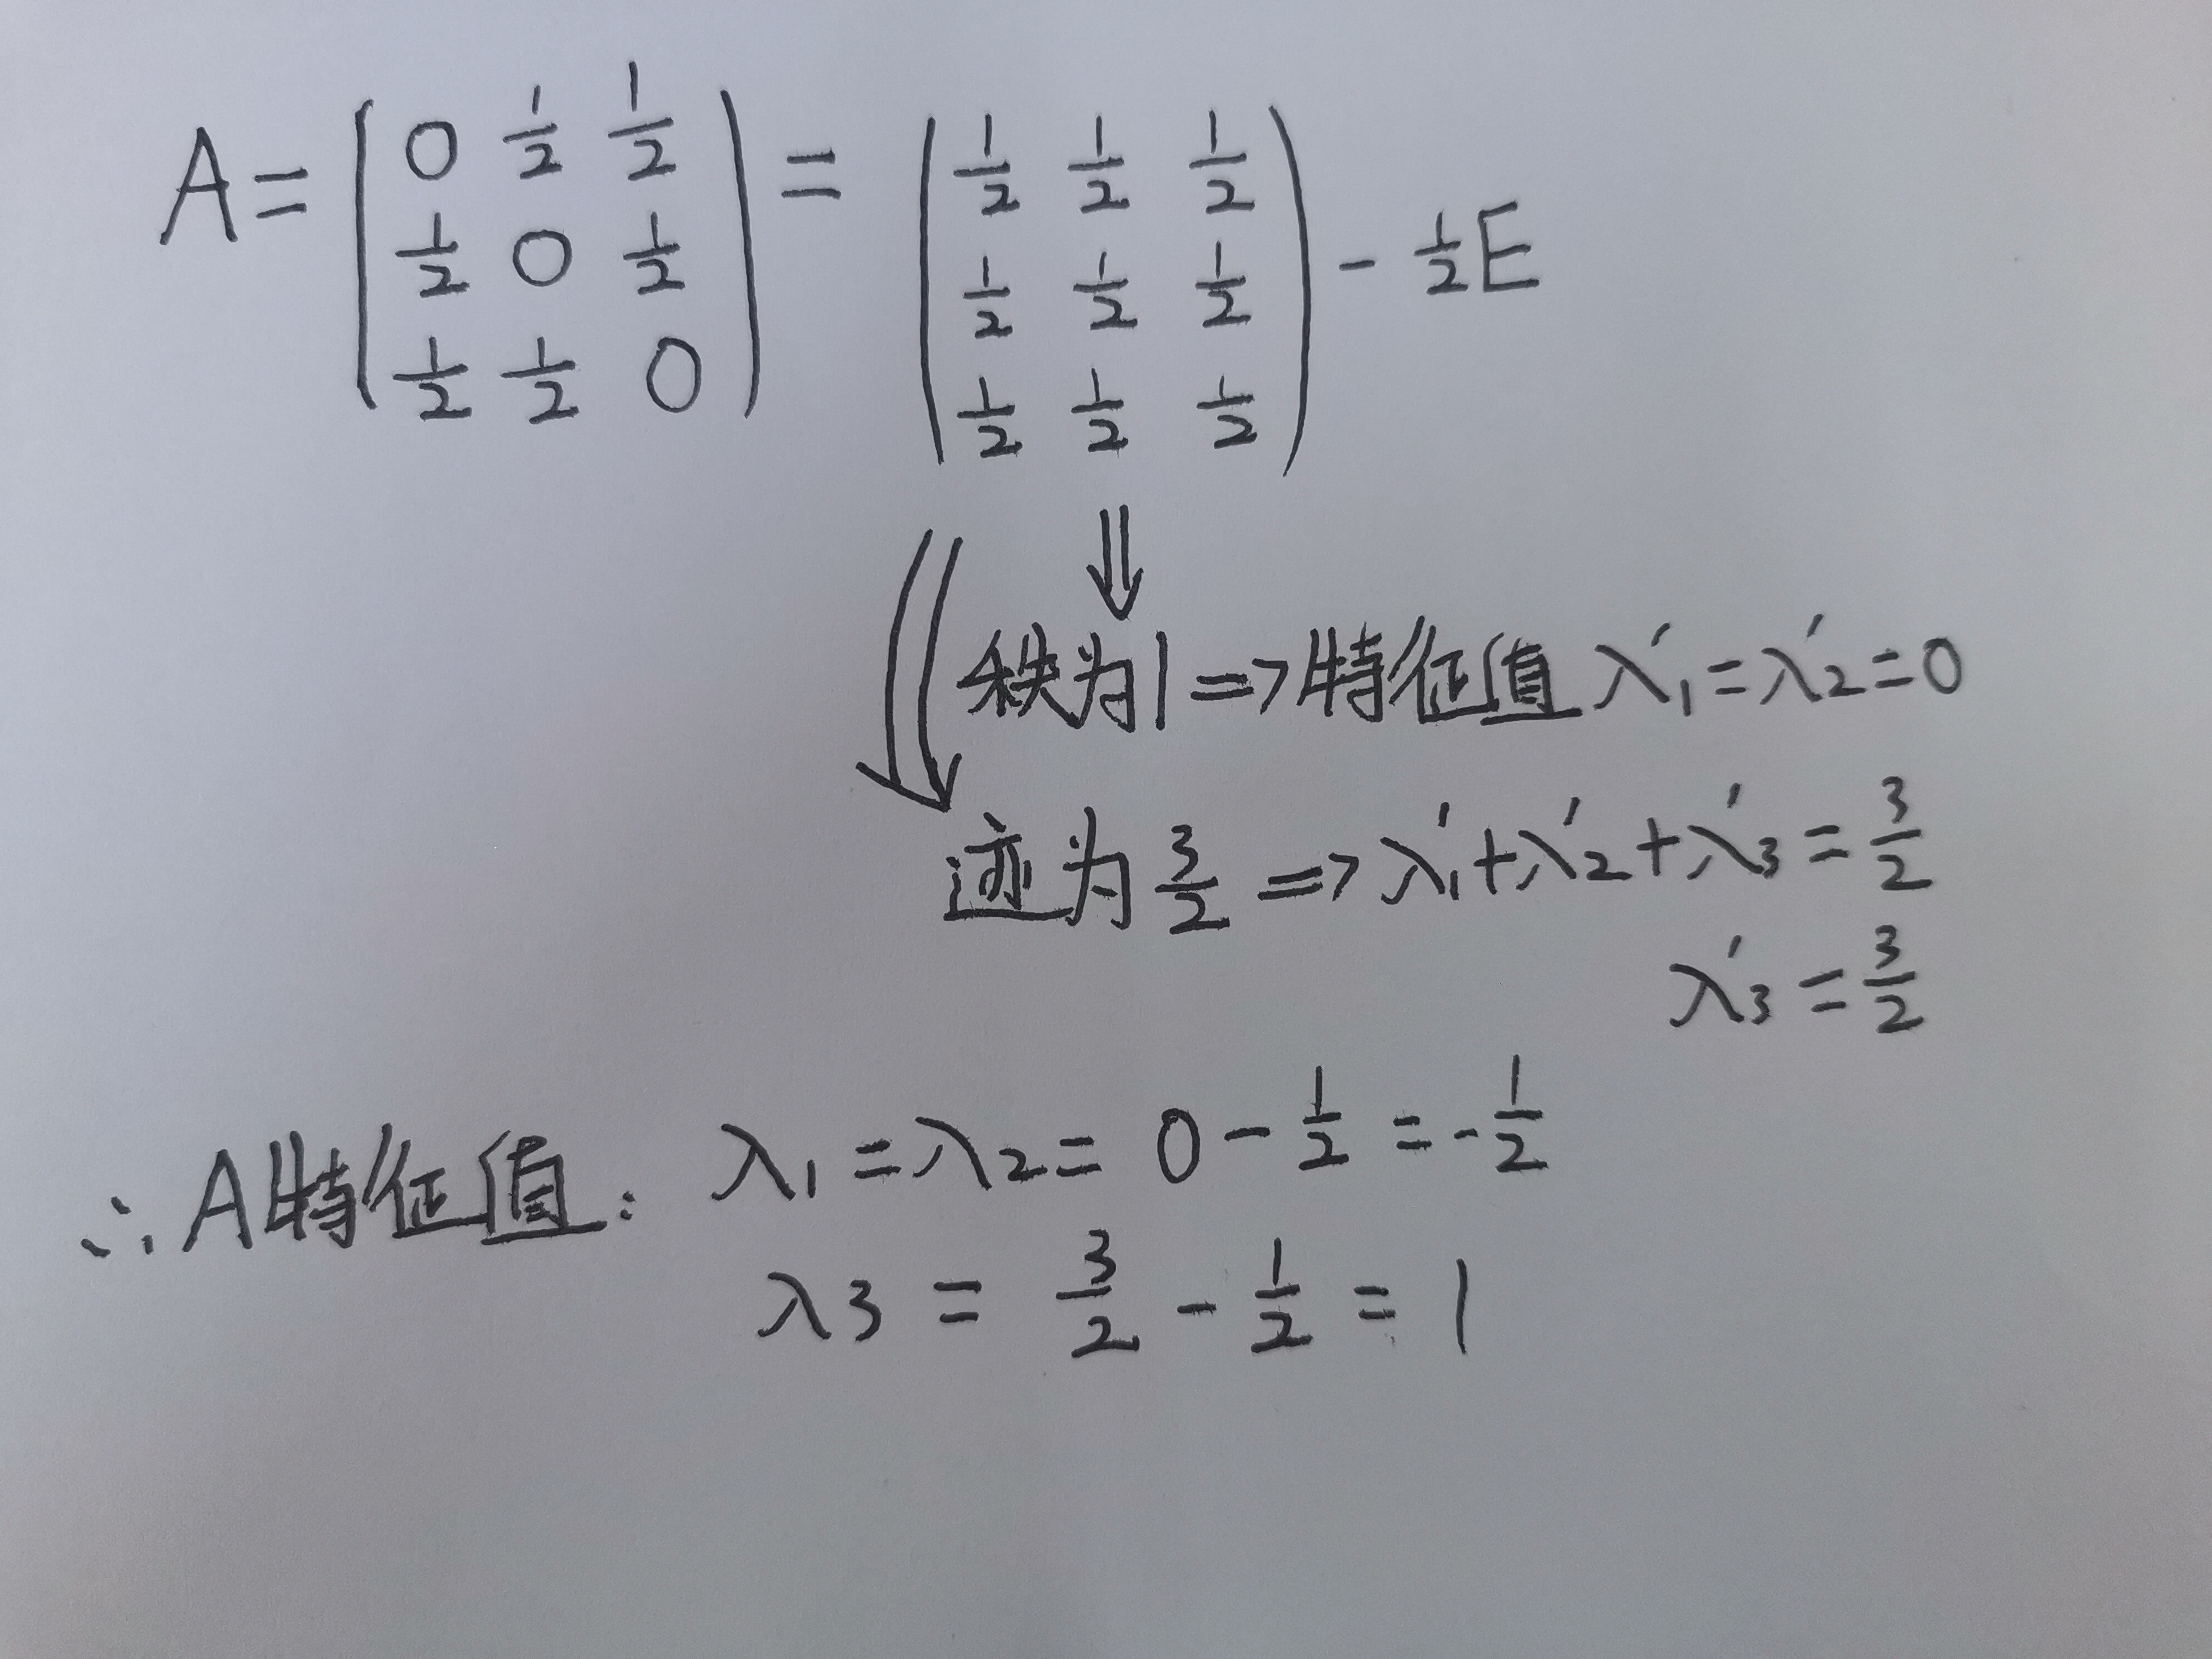 A = (0 1/2 1/2; 1/2 0 1/2; 1/2 1/2 0) = (1/2 1/2 1/2; 1/2 1/2 1/2; 1/2 1/2 1/2) - 1/2 E
⇓ ⇓
秩为1 => 特征值 λ'₁ = λ'₂ = 0
迹为 3/2 => λ'₁ + λ'₂ + λ'₃ = 3/2
λ'₃ = 3/2
∴ A特征值: λ₁ = λ₂ = 0 - 1/2 = -1/2
λ₃ = 3/2 - 1/2 = 1